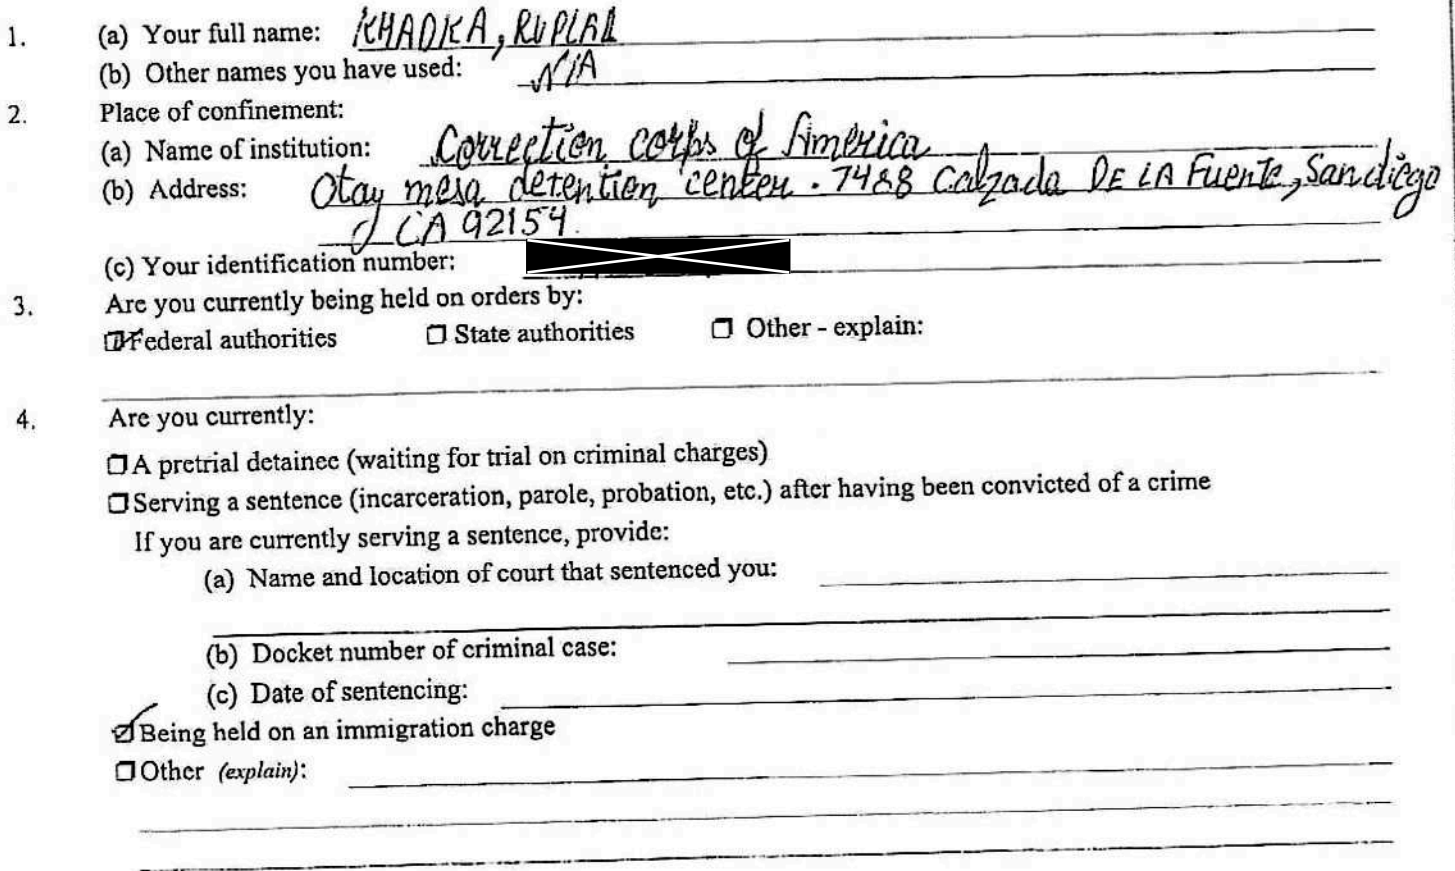 1. (a) Your full name: KHADKA, RUPLAL
(b) Other names you have used: N/A
2. Place of confinement:
(a) Name of institution: Correction corps of America
(b) Address: Otay mesa detention center. 7488 Calzada DE LA Fuente, Sandiego
CA 92154.
(c) Your identification number:
3. Are you currently being held on orders by:
☑ Federal authorities ☐ State authorities ☐ Other - explain:
4. Are you currently:
☐ A pretrial detainee (waiting for trial on criminal charges)
☐ Serving a sentence (incarceration, parole, probation, etc.) after having been convicted of a crime
If you are currently serving a sentence, provide:
(a) Name and location of court that sentenced you:
(b) Docket number of criminal case:
(c) Date of sentencing:
☑ Being held on an immigration charge
☐ Other (explain):